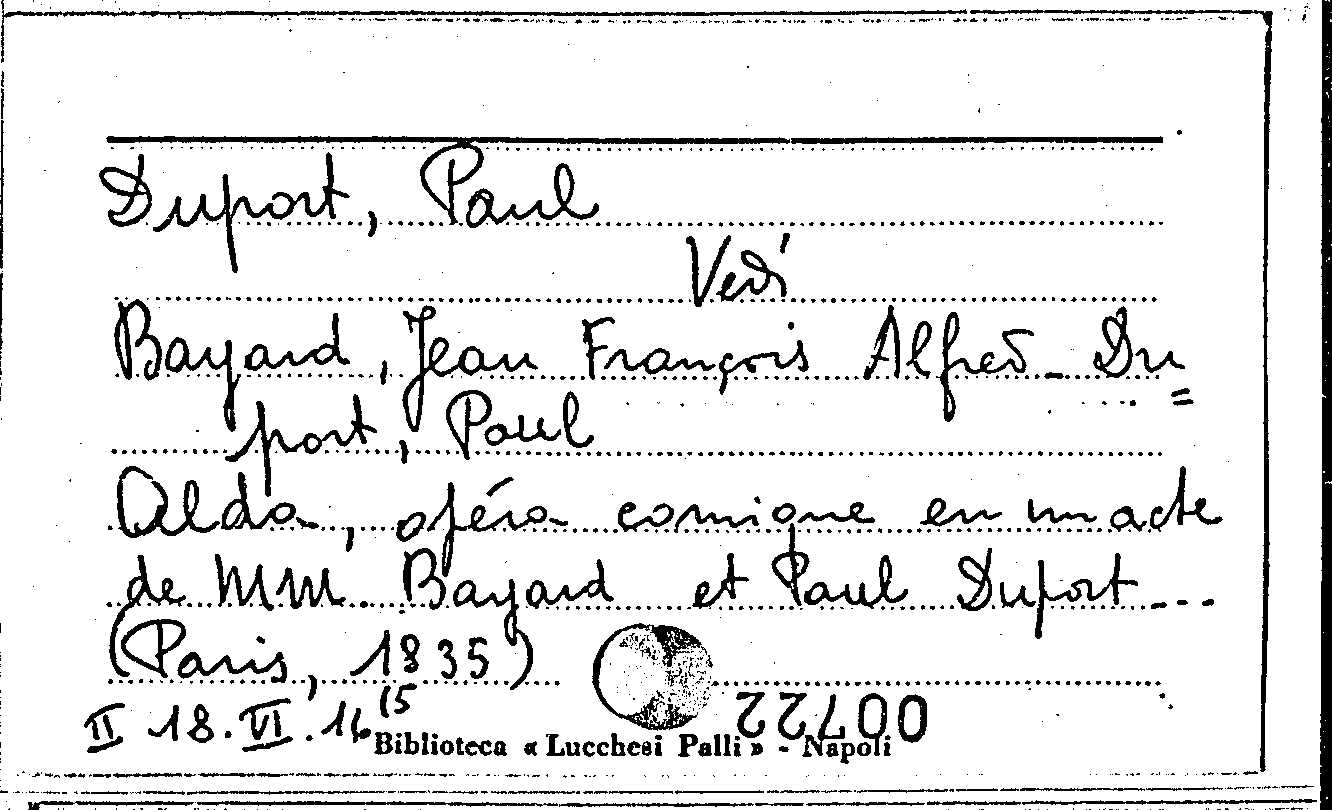 Duport, Paul
Vedi
Bayard, Jean François Alfred - Du=
port, Paul
Alda, opéra comique en un acte
de MM. Bayard et Paul Duport ...
(Paris, 1835)
II 18. VI. 16 15
00722
Biblioteca « Lucchesi Palli » - Napoli